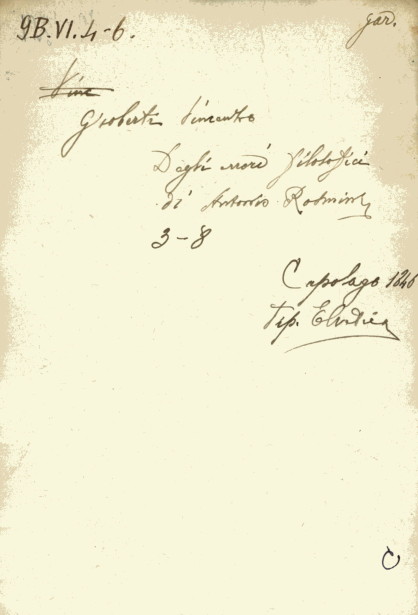 9B.VI.4-6.
gar.
Vinc
Gioberti Vincenzo
Degli errori filosofici
di Antonio Rosmini
3-8
Capolago 1846
Tip. Elvetica
C